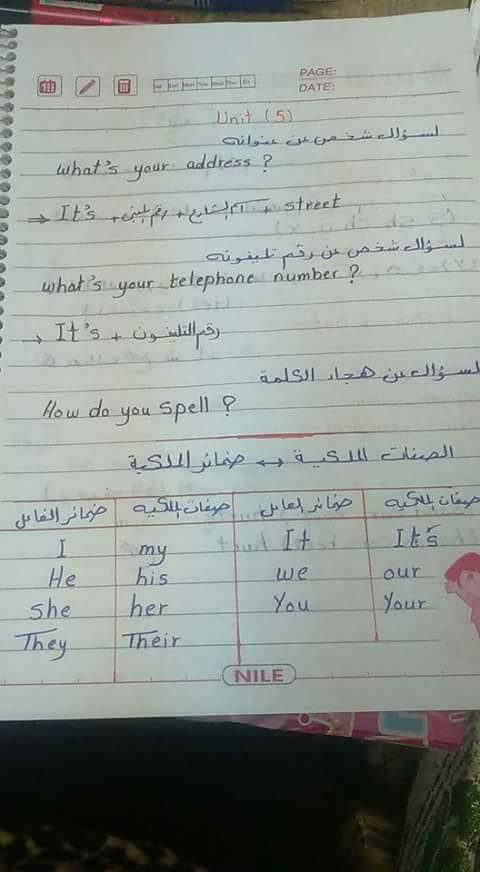 PAGE:
DATE:
Sat Sun Mon Tue Wed Thu Fri
Unit (5)
لسؤال شخص عن عنوانه
What's your address?
⇒ It's + رقم المبنى + اسم الشارع + street
لسؤال شخص عن رقم تليفونه
what's your telephone number?
→ It's + رقم التليفون
لسؤال عن هجاء الكلمة
How do you spell?
الصفات الملكية ↔ ضمائر الملكية
ضمائر الفاعل صفات الملكية ضمائر الفاعل صفات الملكية
I my It It's
He his we our
she her You Your
They Their
NILE